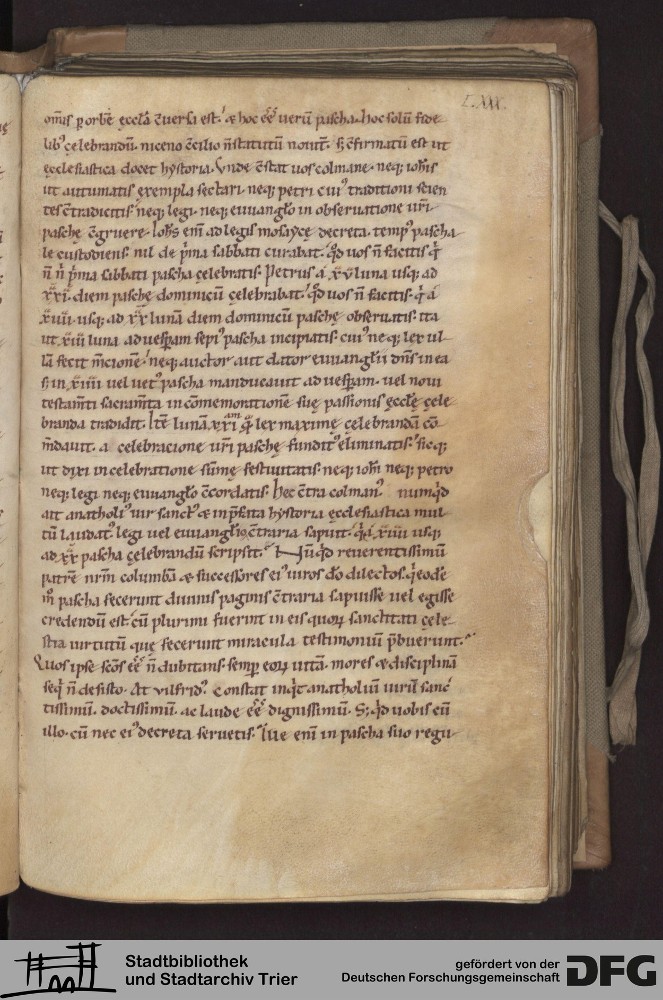 LXXX.
om̅is ꝑ orbē ęccl̅a c̅uersa est. & hoc e̅e̅ ueru̅ pascha. hoc solu̅ fide
lib᾿ celebrandu̅. niceno c̅cilio n̅ statutu̅ nouit᾿. s; c̅firmatu̅ est ut
ęcclesiastica docet hystoria. Vnde c̅stat uos colmane. neq; ioh̅is
ut autumatis exempla sectari. neq; petri cui᾿ traditioni scien
tes c̅tradicitis. neq; legi. neq; euuang̅lo in obseruatione ur̅i
paschę c̅gruere. Ioh̅s eni̅ ad legis mosaycę decreta. temp᾿ pascha
le custodiens. nil de p̅ma sabbati curabat. qd̅ uos n̅ facitis. q̅
n̅ n̅ p̅ma sabbati pascha celebratis. Petrus a̅ xv luna usq; ad
xxi. diem paschę dominicu̅ celebrabat. qd̅ uos n̅ facitis. q̅ a̅
xiiii. usq; ad xx luna̅ diem dominicu̅ paschę obseruatis. ita
ut xiii luna ad uesꝑam sepi᾿ pascha incipiatis. cui᾿ neq; lex ul
la̅ fecit m̅cione̅. neq; auctor aut dator euuang̅lii dn̅s in ea
s; in xiiii uel uet᾿ pascha manducauit ad uesꝑam. uel noui
testam̅ti sacram̅ta in co̅memoratione̅ suę passionis eccl̅ę cele
branda tradidit. Ite̅ luna̅ xxi qa̅m lex maxime celebranda̅ co̅
m̅dauit. a celebracione ur̅i paschę fundit᾿ eliminatis. sicq;
ut dixi in celebratione su̅mę festiuitatis. neq; ioh̅i neq; petro
neq; legi neq; euuang̅lo c̅cordatis. Hec c̅tra colman᾿. numq̅d
ait anatholi᾿ uir sanct᾿ & in p̅fata hystoria ecclesiastica mul
tu̅ laudat᾿. legi uel euuang̅lio c̅traria sapuit. q̅ a̅ xiiii usq;
ad xx pascha celebrandu̅ scripsit. Nu̅q̅d reuerentissimu̅
patre̅ nr̅m columba̅ & successores ei᾿ uiros d̅o dilectos. q̅ eode̅
m̅ pascha fecerunt diuinis paginis c̅traria sapuisse uel egisse
credendu̅ est. cu̅ plurimi fuerint in eis quoꝝ sanctitati cęle
stia uirtutu̅ quę fecerunt miracula testimoniu̅ p̅buerunt.
Quos ipse sc̅os e̅e̅ n̅ dubitans. semꝑ eoꝝ uita̅. mores & disciplina̅
seq̅ n̅ desisto. At vilfrid᾿. Constat inq̅t anatholiu̅ uiru̅ sanc
tissimu̅. doctissimu̅. ac laude e̅e̅ dignissimu̅. S; q̅d uobis cu̅
illo. cu̅ nec ei᾿ decreta seruetis. Ille eni̅ in pascha suo regu
Stadtbibliothek
und Stadtarchiv Trier
gefördert von der
Deutschen Forschungsgemeinschaft
DFG